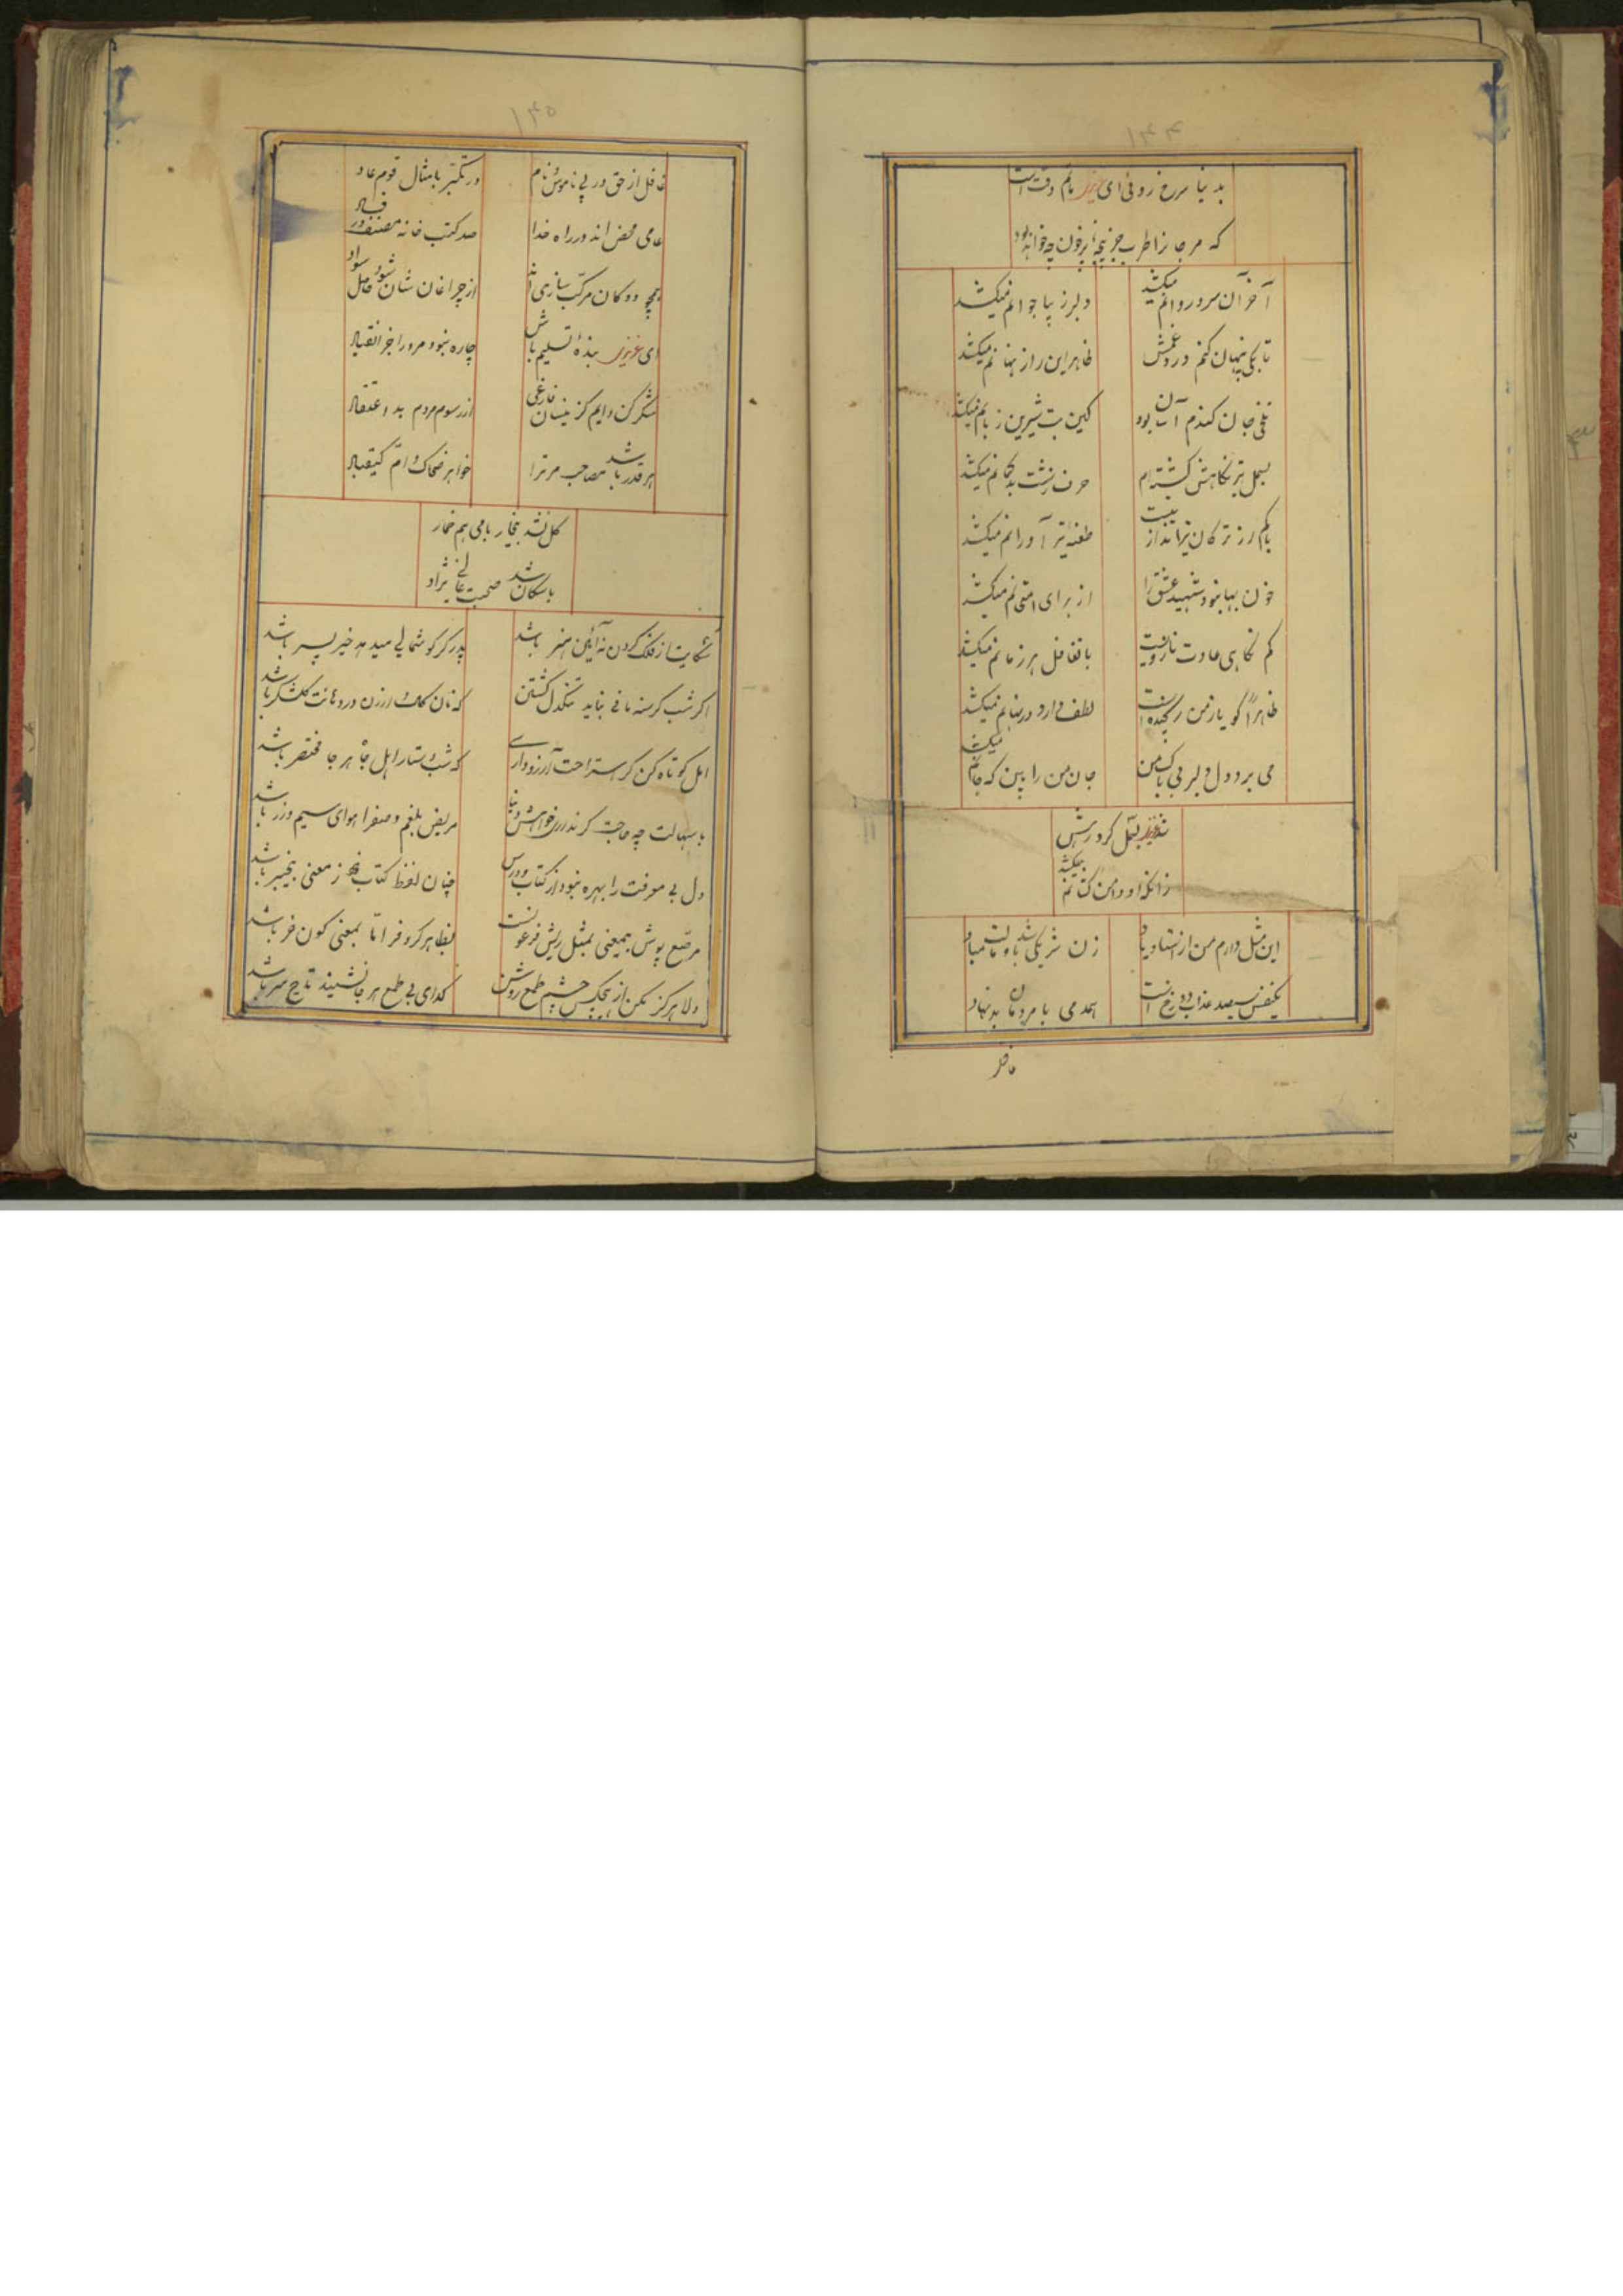 ۱۴۴
بدنیا سرخ روئی ای عزیز مانم وقت است
که مرجانرا طرب جز پنجهٔ پرخون چه خواهد بود
آخر آن سرو روانم میکشد دلبر زیبا جوانم میکشد
تا بکی پنهان کنم درد غمش ظاهر این راز نهانم میکشد
تلخی جان کندم آسان بود کین بت شیرین زبانم میکشد
بسمل تیر نگاهش گشته‌ام حرف زشت بدگمانم میکشد
باکم از ترکان تیرانداز نیست طعنهٔ تیر آورانم میکشد
خون بها نبود شهید عشق را از برای امتحانم میکشد
کم نگاهی عادت نازوست با تغافل هر زمانم میکشد
ظاهراً گو یار من رنجیده است لطف دارد در نهانم میکشد
می برد دل دلبر بی باک من جان من را بین که جانم میکشد
شد عزیز بسمل کرد رهش
زانکه او دامن کشانم میکشد
این مثل دارم من از استاد یاد زن شریکی باشد باولت مباد
یکنفس سیصد عذاب دوزخ است همدمی با مردمان بدنهاد
غافل
۱۴۵
غافل از حق در پی ناموس و نام در تکبر با مثال قوم عاد
عامی محض اند در راه خدا صد کتب خانه مصنف در فساد
همچو دوکان مرکب سازی اند از چراغان شان شود حاصل سواد
ای عزیز بندهٔ تسلیم باش چاره نبود مرد را جز انقیاد
شکر کن دایم کز ینسان فارغی از رسوم مردم بد اعتقاد
هر قدر باشد مصاحب مر ترا خواهر ضحاک و ام کیقباد
گل نشد بیخار با می هم خمار
باسگان شد صحبت عالی نژاد
شکایت از فلک کردن نه آئین هنر باشد پدر کر گوشمالی میدهد خیر پسر باشد
اگر شب گرسنه مانی نباید تنگدل گشتن که نان کاک ارزن در دهانت گلشکر باشد
امل کوتاه کن گر استراحت آرزو داری که شب دستار اهل جاه هر جا مختصر باشد
با سهالت چه حاجت گر نداری خواهش دنیا مریض بلغم و صفرا هوای سیم و زر باشد
دل بی معرفت را بهره نبود از کتاب و درس چنان لفظ کتاب فقه ز معنی بیخبر باشد
مرصع پوش بیمعنی بمثل ریش فرعونست بظاهر کر و فر اما بمعنی کون خر باشد
دلا هرگز مکن از هیچکس چشم طمع روشن گدای بی طمع هر جا نشیند تاج سر باشد